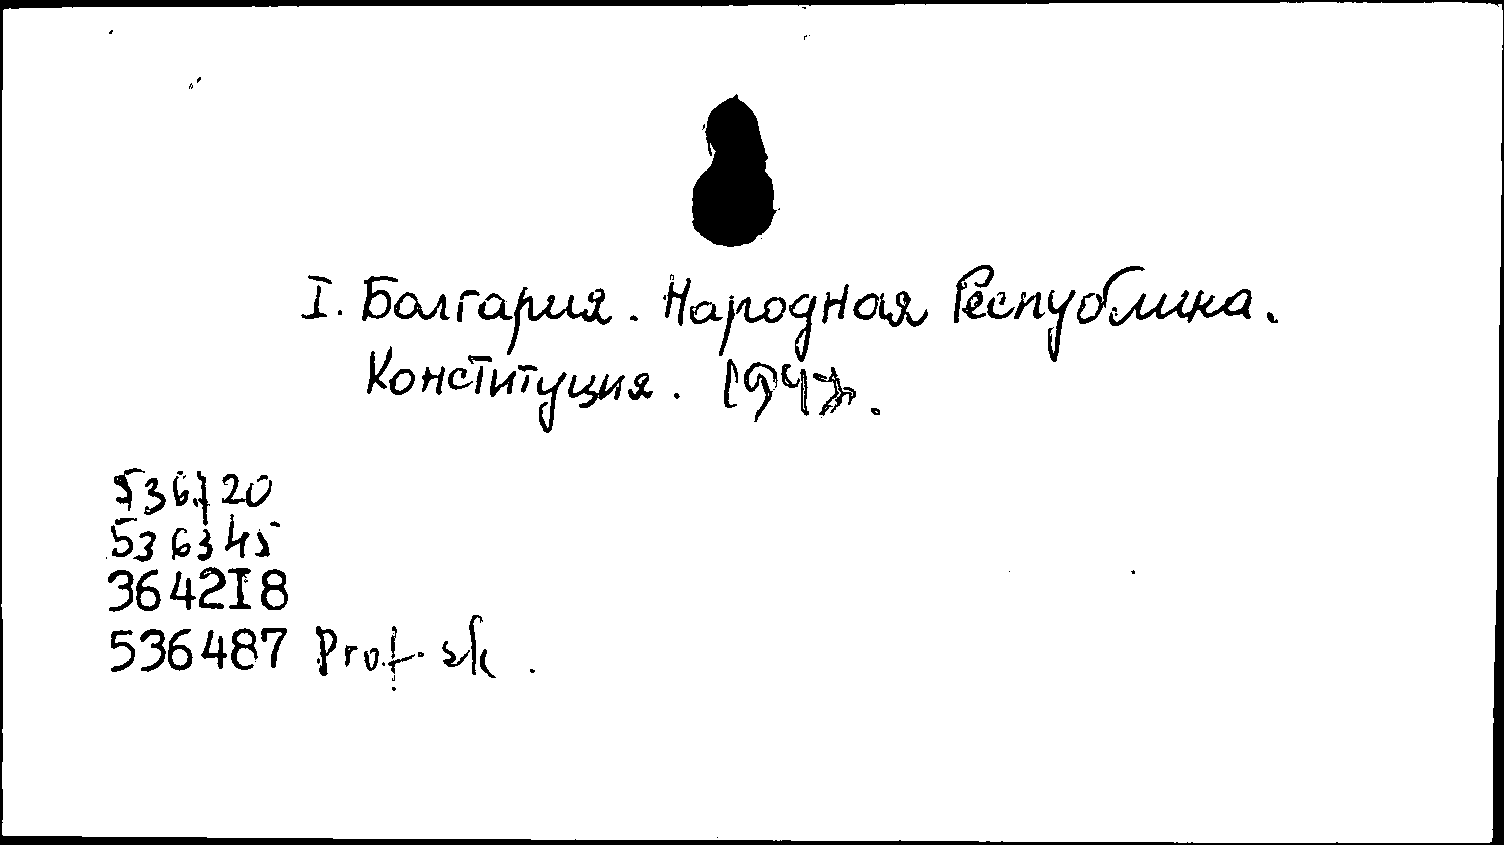 I. Болгария. Народная Республика.
Конституция. 1947.
536720
536345
364218
536487 Prof. sk.